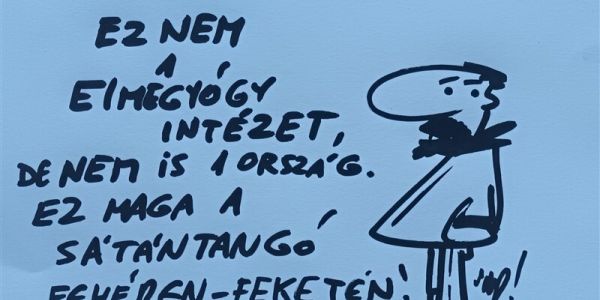 EZ NEM
A
ElMEGYÓGY
INTÉZET,
DE NEM IS 1 ORSZÁG.
EZ MAGA A
SÁTÁNTANGÓ
FEHÉREN-FEKETÉN!